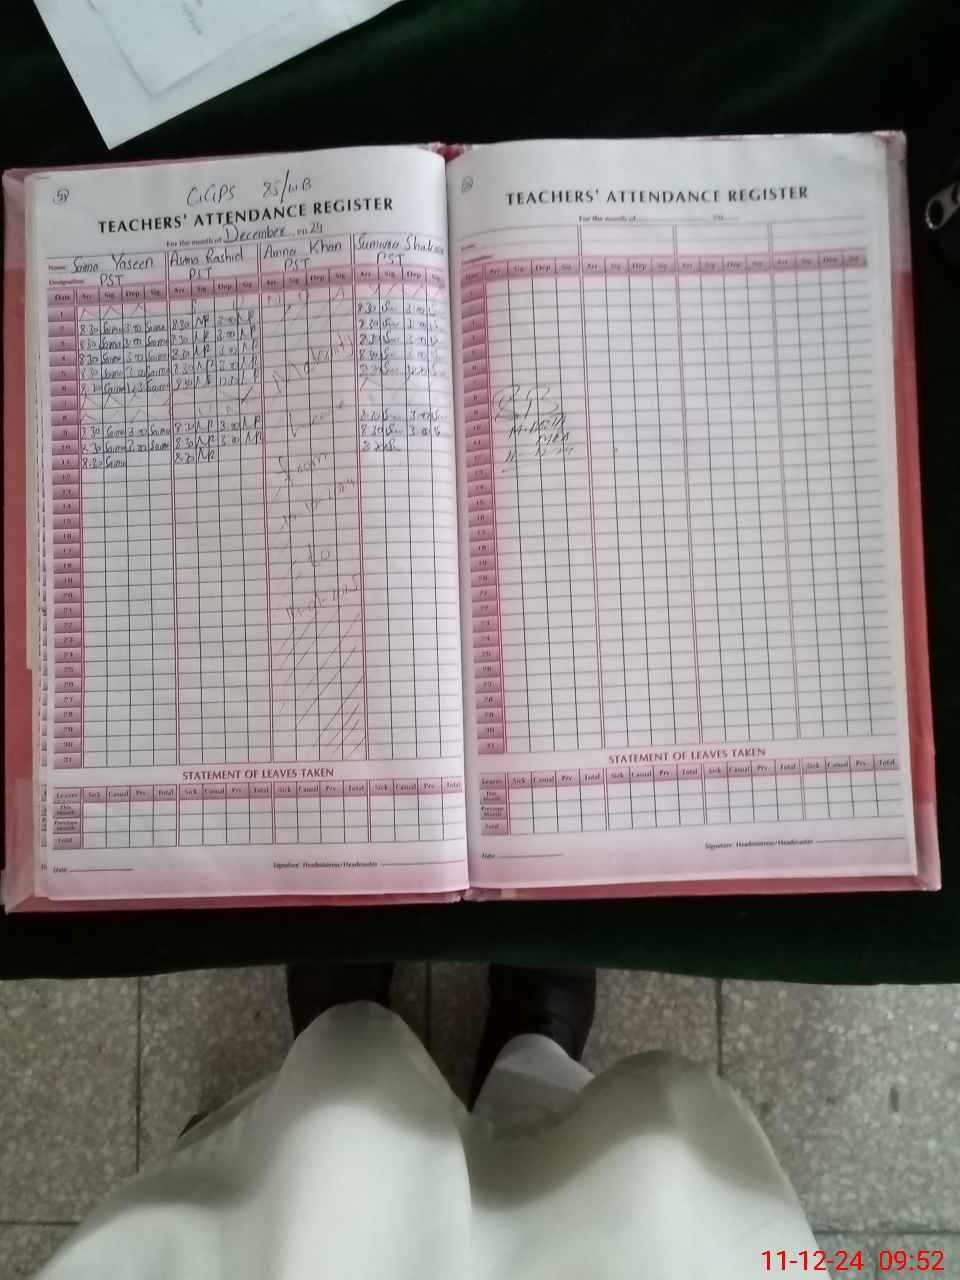 51
GGPS 85/WB
TEACHERS' ATTENDANCE REGISTER
For the month of December 2024
Name: Saima Yaseen Asma Rashid Amna Khan
Designation: PST PST PST PST
Date Arr. Sig. Dep. Sig. Arr. Sig. Dep. Sig. Arr. Sig. Dep. Sig. Arr. Sig. Dep. Sig.
1
2 8:30 Saima 3:00 Saima 8:30 AR 3:00 AR 8:30 3:00
3 8:30 Saima 3:00 Saima 8:30 AR 3:00 AR 8:30 3:00
4 8:30 Saima 3:00 Saima 8:30 AR 3:00 AR 8:30 3:00
5 8:30 Saima 3:00 Saima 8:30 AR 3:00 AR 8:30 3:00
6 8:30 Saima Saima 8:30 AR AR 8:30
7
8
9 8:30 Saima 3:00 Saima 8:30 AR 3:00 AR 8:30 3:00
10 8:30 Saima 3:00 Saima 8:30 AR 3:00 AR 8:30 3:00
11 8:30 Saima 8:30 AR 8:30
12
13
14
15
16
17
18
19
20
21
22
23
24
25
26
27
28
29
30
31
Maternity
Leave
from
to
STATEMENT OF LEAVES TAKEN
Leaves Sick Casual Prv. Total Sick Casual Prv. Total Sick Casual Prv. Total Sick Casual Prv. Total
This Month
Previous Month
Total
Date
Signature: Headmistress/Headmaster
TEACHERS' ATTENDANCE REGISTER
For the month of 20
Name:
Designation:
Date Arr. Sig. Dep. Sig. Arr. Sig. Dep. Sig. Arr. Sig. Dep. Sig. Arr. Sig. Dep. Sig.
1
2
3
4
5
6
7
8
9
10
11
12
13
14
15
16
17
18
19
20
21
22
23
24
25
26
27
28
29
30
31
11-12-24
STATEMENT OF LEAVES TAKEN
Leaves Sick Casual Prv. Total Sick Casual Prv. Total Sick Casual Prv. Total Sick Casual Prv. Total
This Month
Previous Month
Total
Date
Signature: Headmistress/Headmaster
11-12-24 09:52